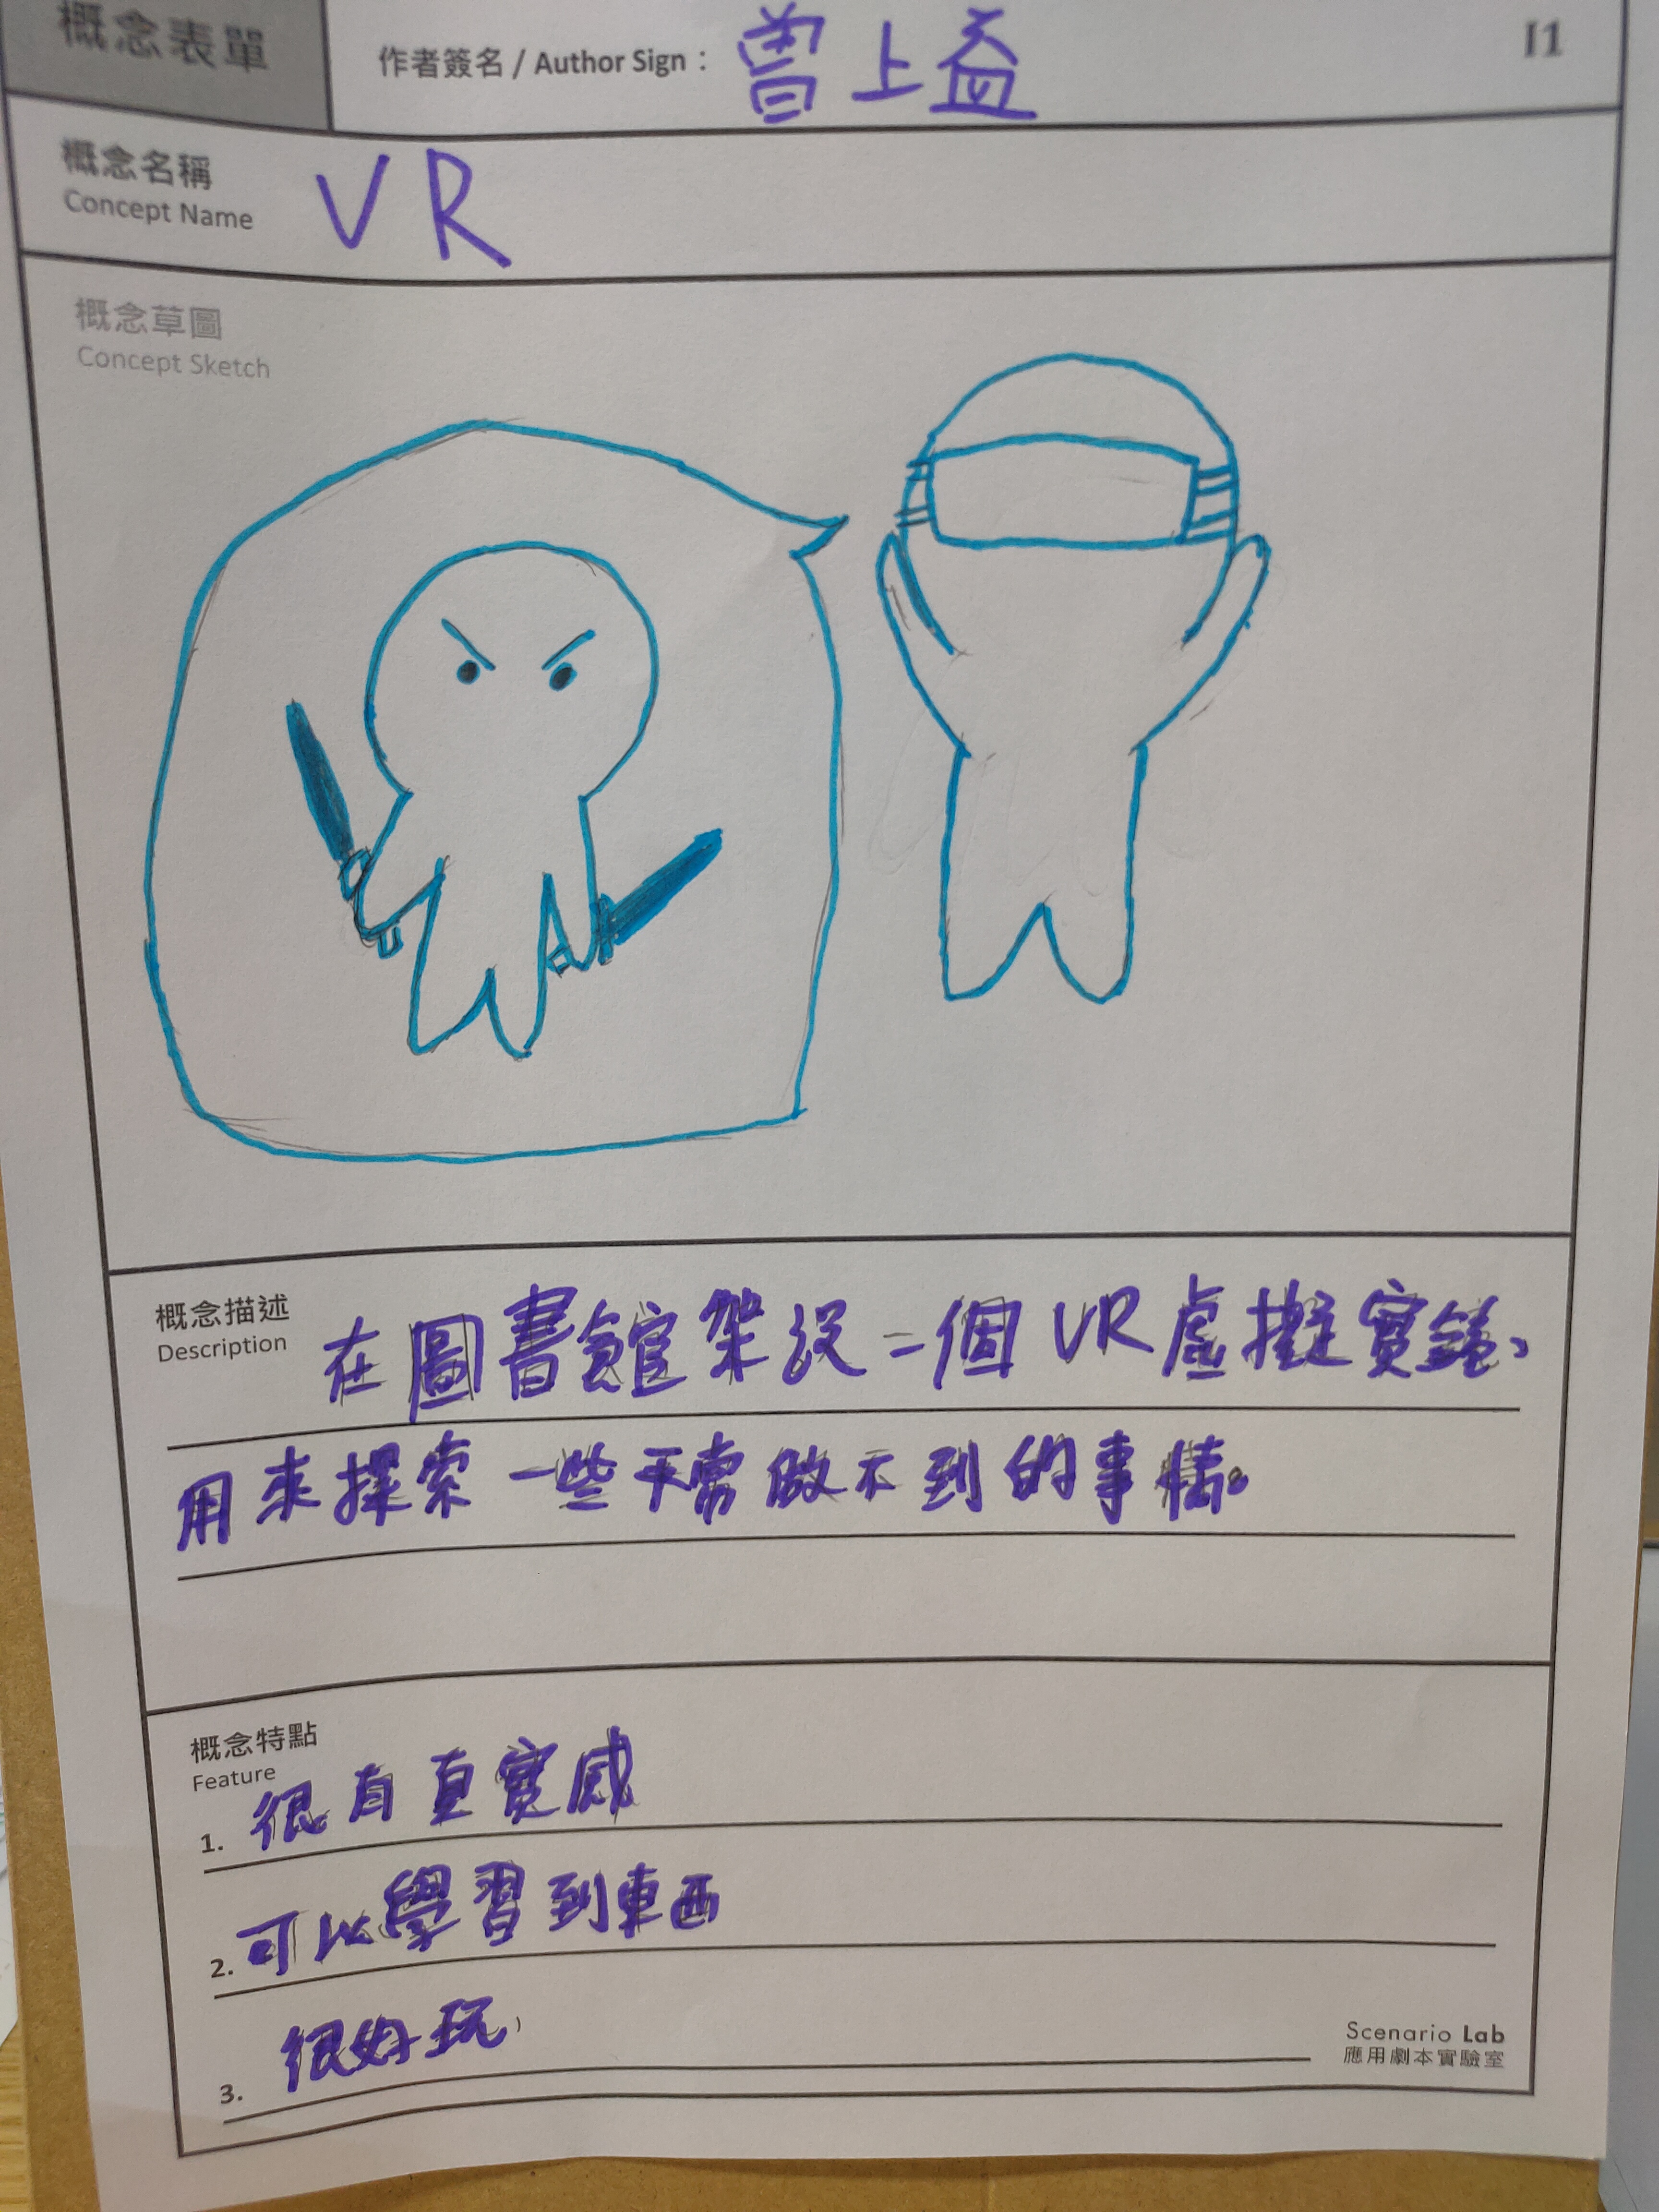 概念表單
作者簽名 / Author Sign： 曾上益
I1
概念名稱
Concept Name
VR
概念草圖
Concept Sketch
概念描述
Description
在圖書館架設一個VR虛擬實鏡、
用來探索一些平常做不到的事情。
概念特點
Feature
1. 很有真實感
2. 可以學習到東西
3. 很好玩
Scenario Lab
應用劇本實驗室